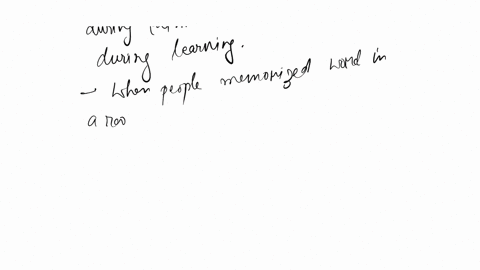 during
during learning.
→ When people memorized word in
a roo